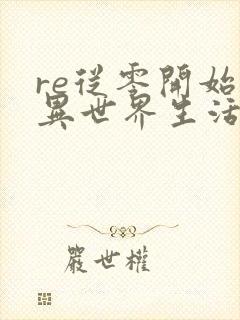 re從零開始
異世界生活
嚴世權